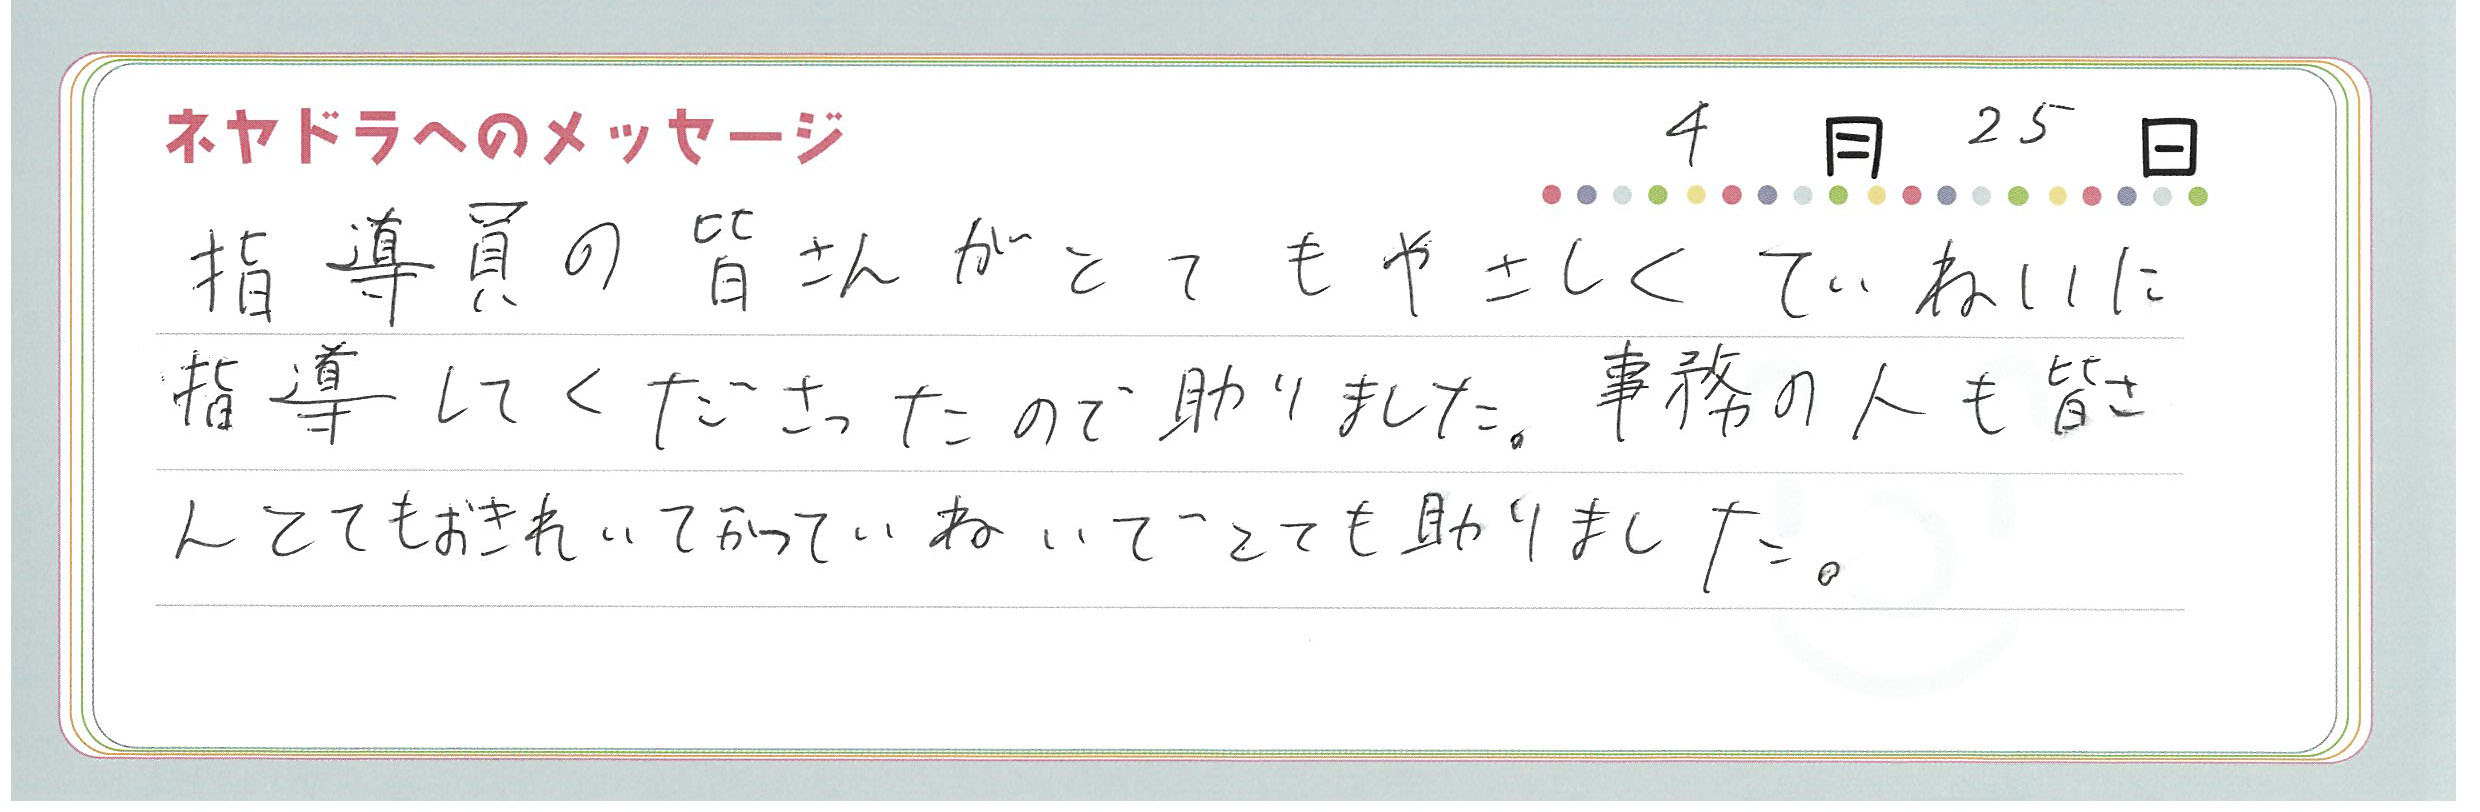 ネヤドラへのメッセージ
4月25日
指導員の皆さんがとてもやさしくていねいに
指導してくださったので助りました。事務の人も皆さ
んとてもおきれいでかつていねいでとても助りました。